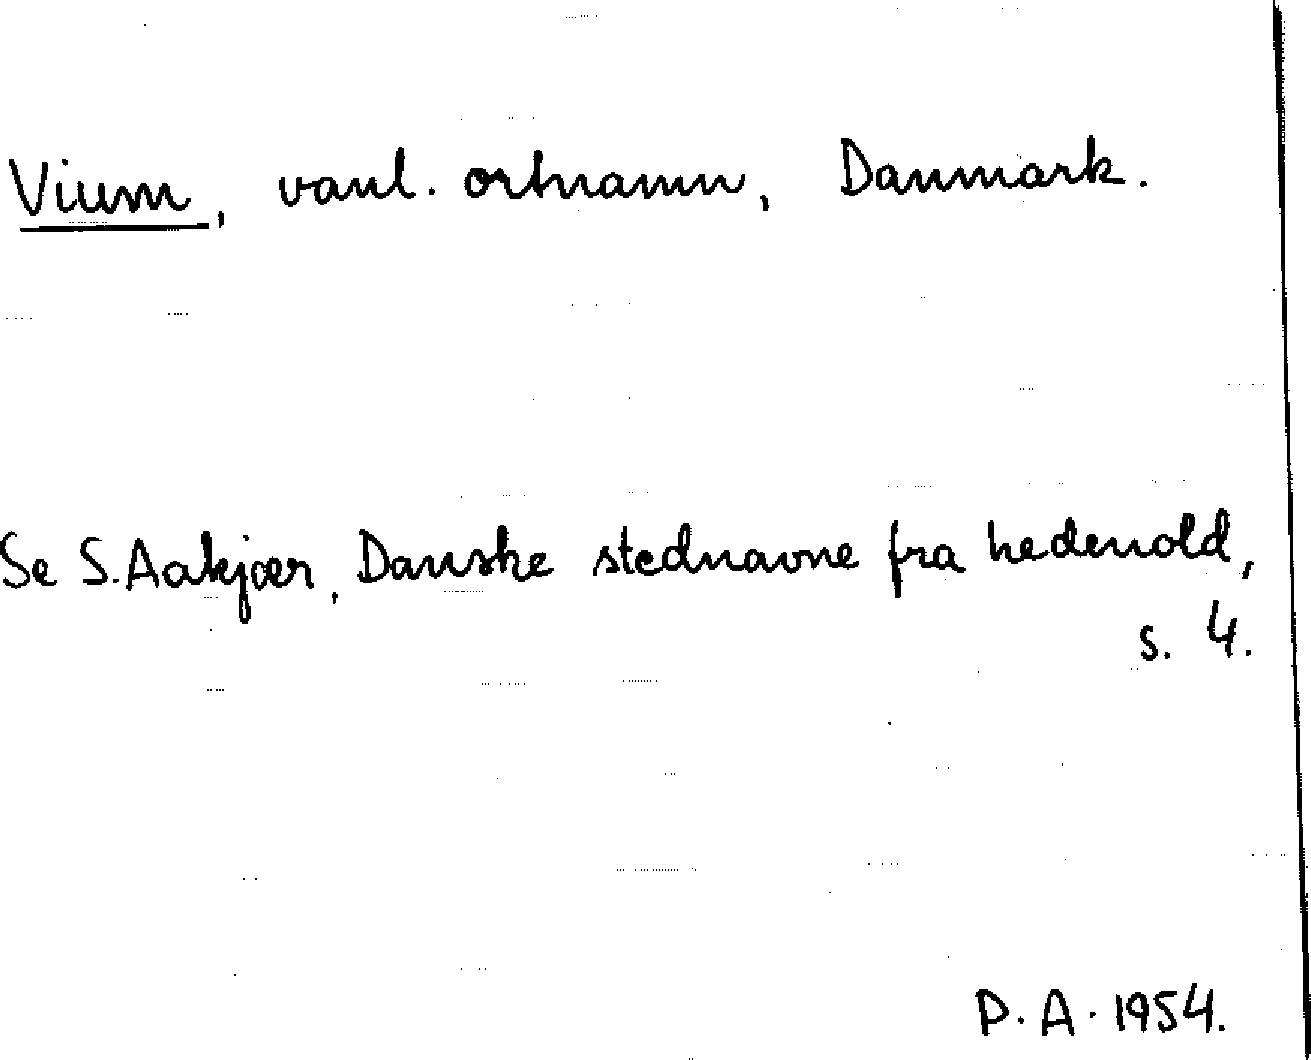 Vium, vanl. ortnamn, Danmark.
Se S. Aakjær, Danske stednavne fra hedenold,
s. 4.
P. A. 1954.